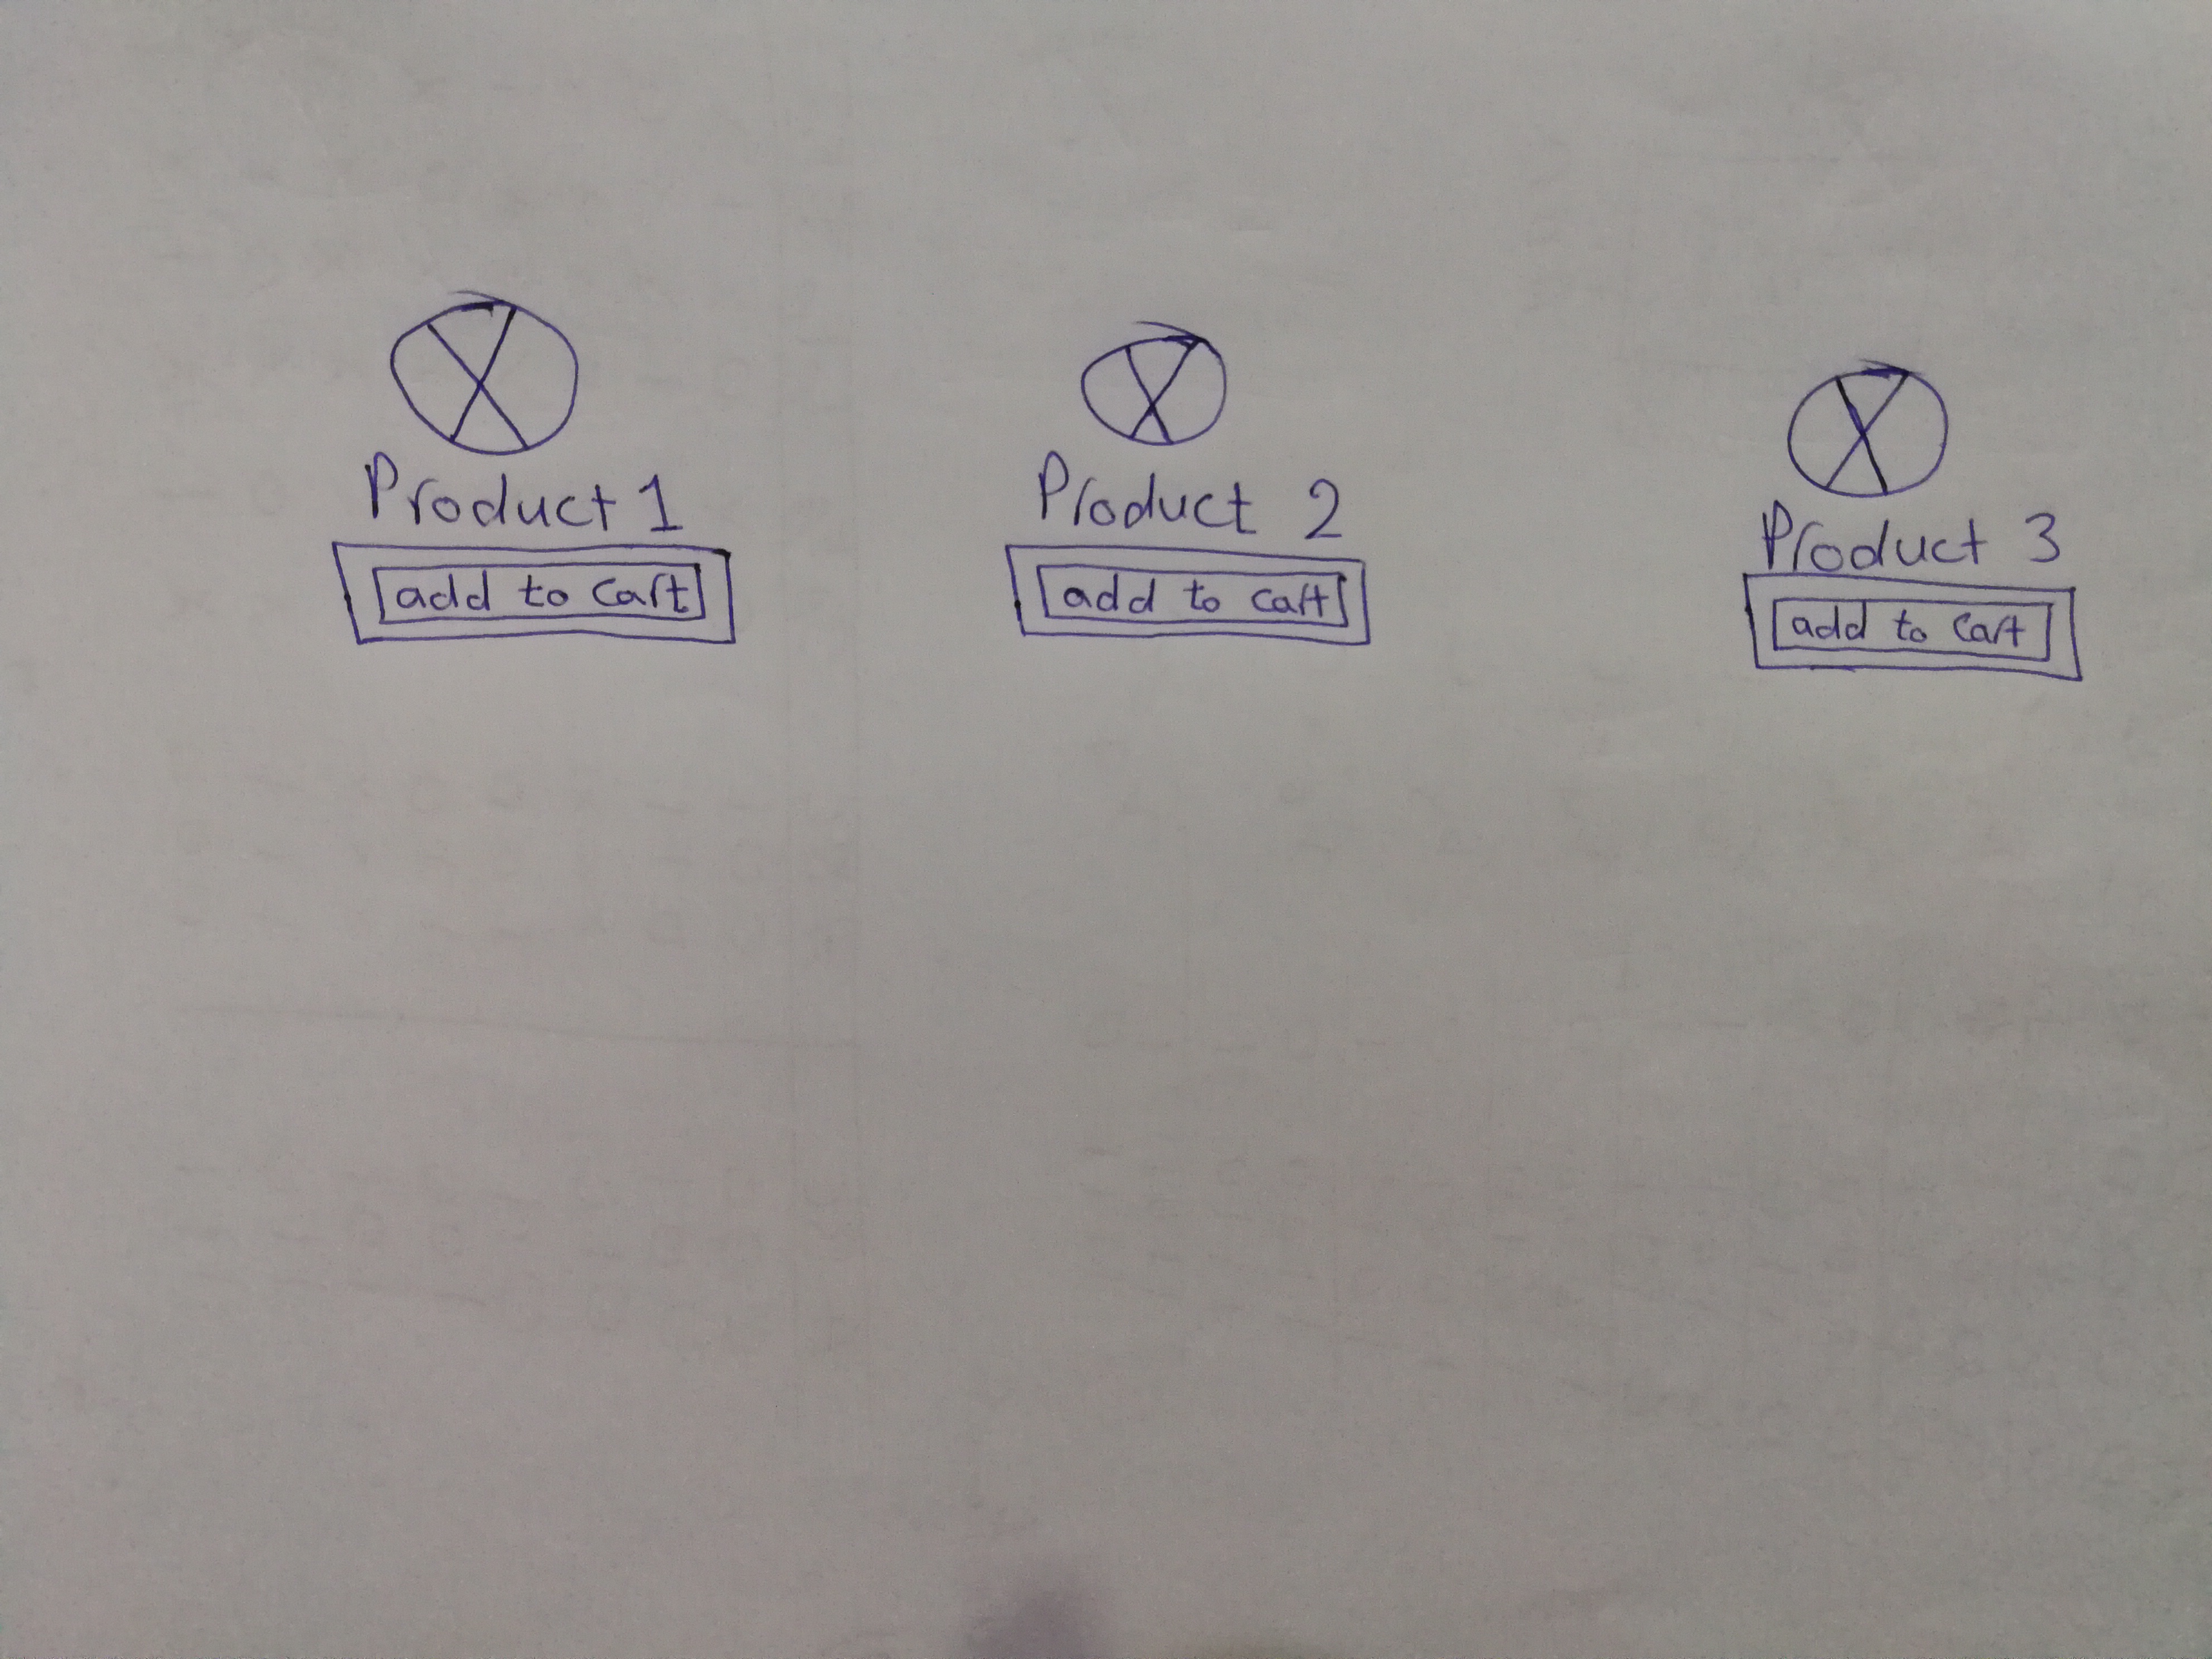 Product 1
add to cart
Product 2
add to cart
Product 3
add to cart